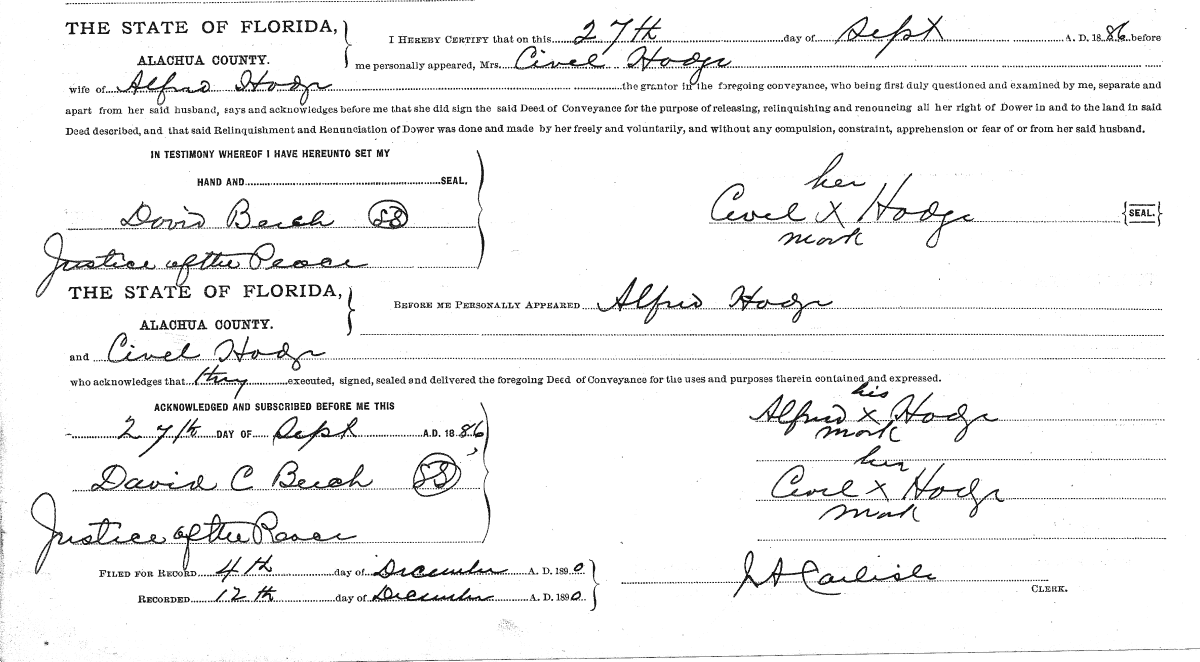 THE STATE OF FLORIDA,
ALACHUA COUNTY.
I HEREBY CERTIFY that on this 27th day of Sept A. D. 1886 before
me personally appeared, Mrs. Civel Hodge
wife of Alfred Hodge the grantor in the foregoing conveyance, who being first duly questioned and examined by me, separate and
apart from her said husband, says and acknowledges before me that she did sign the said Deed of Conveyance for the purpose of releasing, relinquishing and renouncing all her right of Dower in and to the land in said
Deed described, and that said Relinquishment and Renunciation of Dower was done and made by her freely and voluntarily, and without any compulsion, constraint, apprehension or fear of or from her said husband.
IN TESTIMONY WHEREOF I HAVE HEREUNTO SET MY
HAND AND SEAL.
her
Civel X Hodge {SEAL.}
mark
David Beach
Justice of the Peace
THE STATE OF FLORIDA,
ALACHUA COUNTY.
BEFORE ME PERSONALLY APPEARED Alfred Hodge
and Civel Hodge
who acknowledges that they executed, signed, sealed and delivered the foregoing Deed of Conveyance for the uses and purposes therein contained and expressed.
ACKNOWLEDGED AND SUBSCRIBED BEFORE ME THIS
27th DAY OF Sept A.D. 1886,
David C Beach
Justice of the Peace
his
Alfred X Hodge
mark
her
Civel X Hodge
mark
FILED FOR RECORD 4th day of December A. D. 1890
RECORDED 12th day of December A. D. 1890
Carlisle
CLERK.